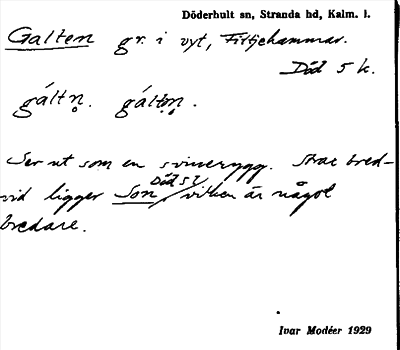 Döderhult sn, Stranda hd, Kalm. l.
Galten gr. i vyt, Fittjehammar.
Död 5 k.
gáltn̥. gáltn̥.
Ser ut som en svinerygg. Strax bred-
vid ligger Son, Död 52 vilken är något
bredare.
Ivar Modéer 1929